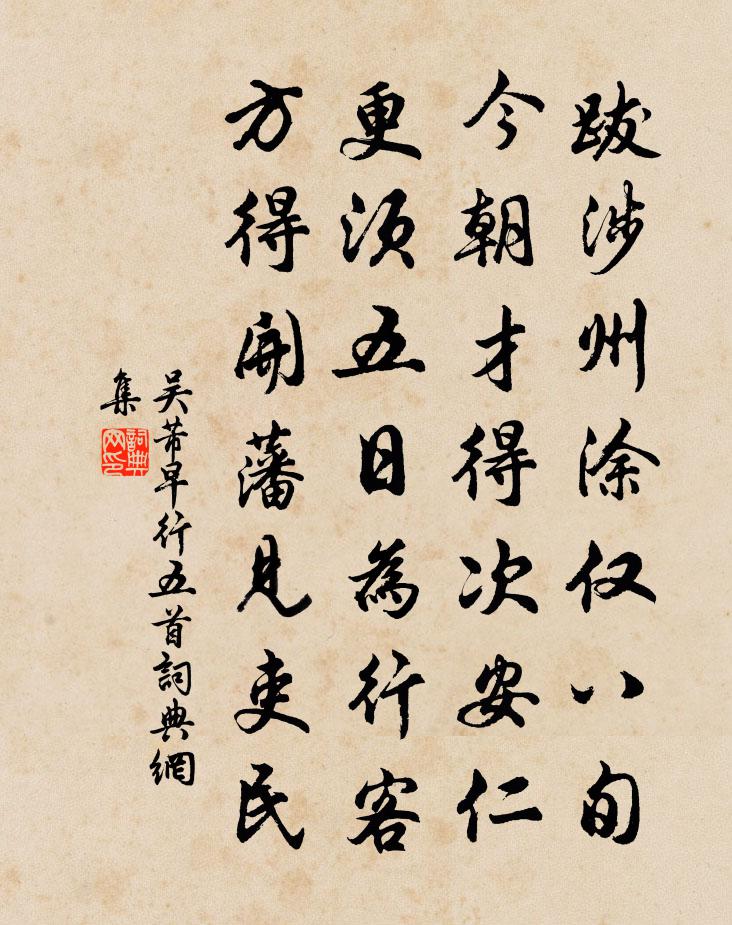 跋涉州涂仅八旬
今朝才得次安仁
更须五日為行客
方得開藩見吏民
吴芾早行五首詞典網
集
詞典
网印